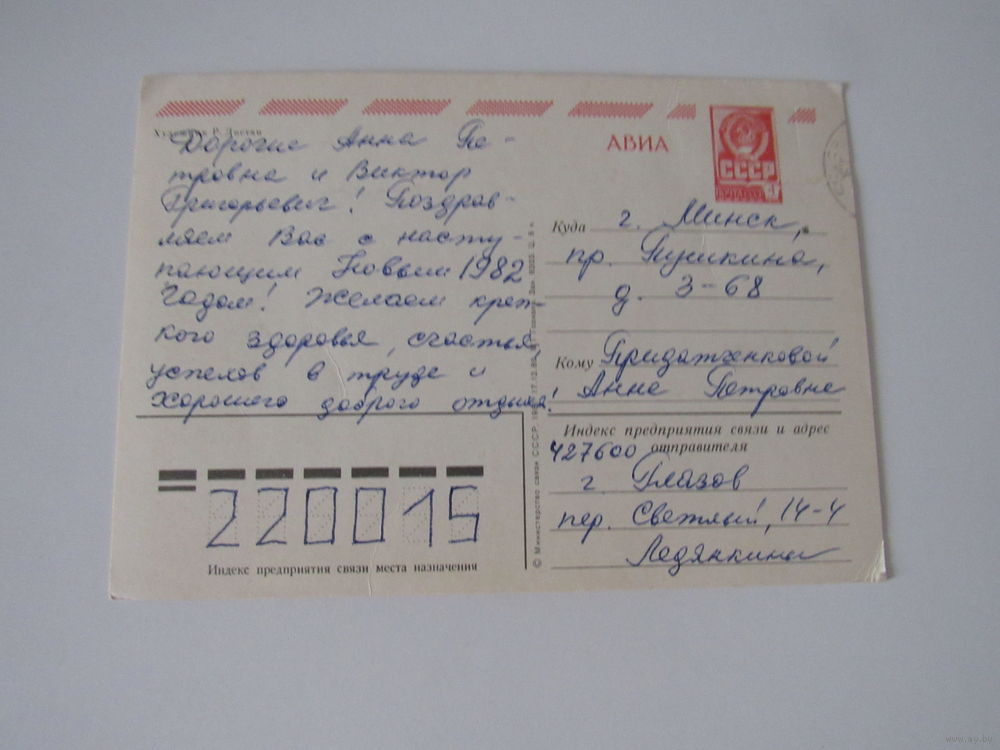 Художник Р.
АВИА
СССР
Дорогие Анна Пе-
тровна и Виктор
Григорьевич! Поздрав-
ляем Вас с насту-
пающим Новым 1982
Годом! Желаем креп-
кого здоровья, счастья,
успехов в труде и
хорошего доброго отдыха!
Куда г. Минск,
пр. Пушкина,
д. 3-68
Кому Придатченковой
Анне Петровне
Индекс предприятия связи и адрес
отправителя
427600
г. Глазов
пер. Светлый, 14-4
Ледянкины
220015
Индекс предприятия связи места назначения
© Министерство связи СССР.
www.ay.by